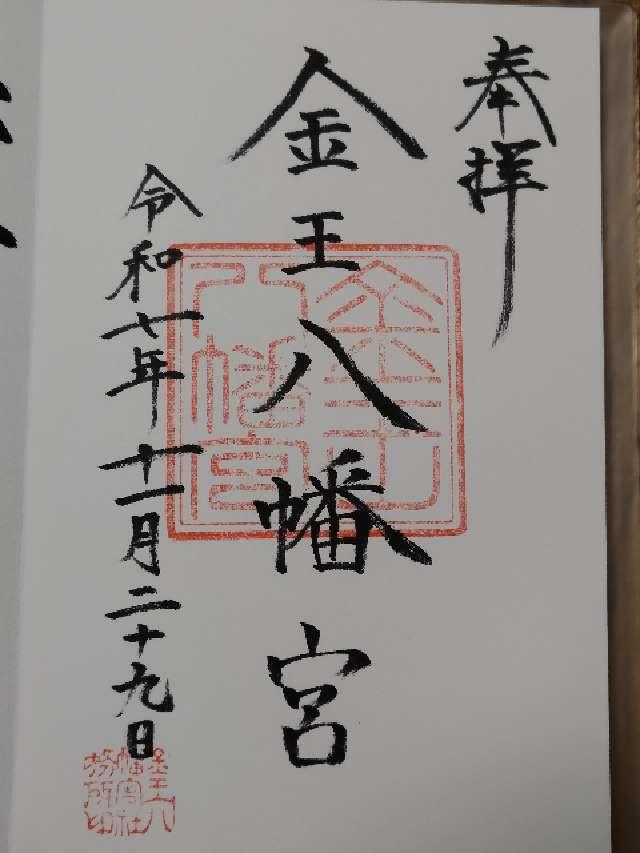 奉拝
金王八幡宮
令和七年十一月二十九日
金王八幡宮
金王八幡宮社務所印